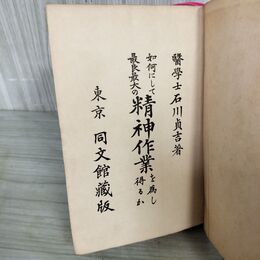 醫學士 石川貞吉著
如何にして
最良最大の
精神作業を為し
得るか
東京 同文館藏版